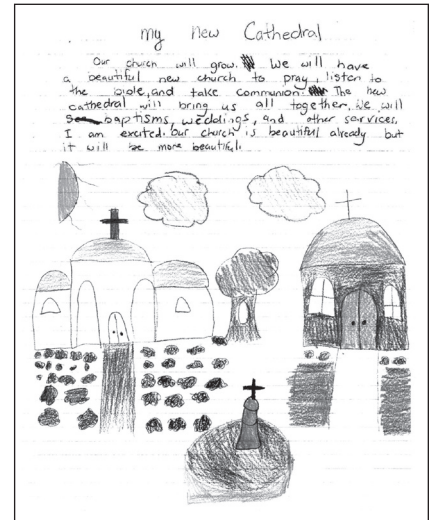 my new Cathedral
Our church will grow. We will have
a beautiful new church to pray, listen to
the bible, and take communion. The new
cathedral will bring us all together. We will
baptisms, weddings, and other services.
I am excited. Our church is beautiful already but
it will be more beautiful.